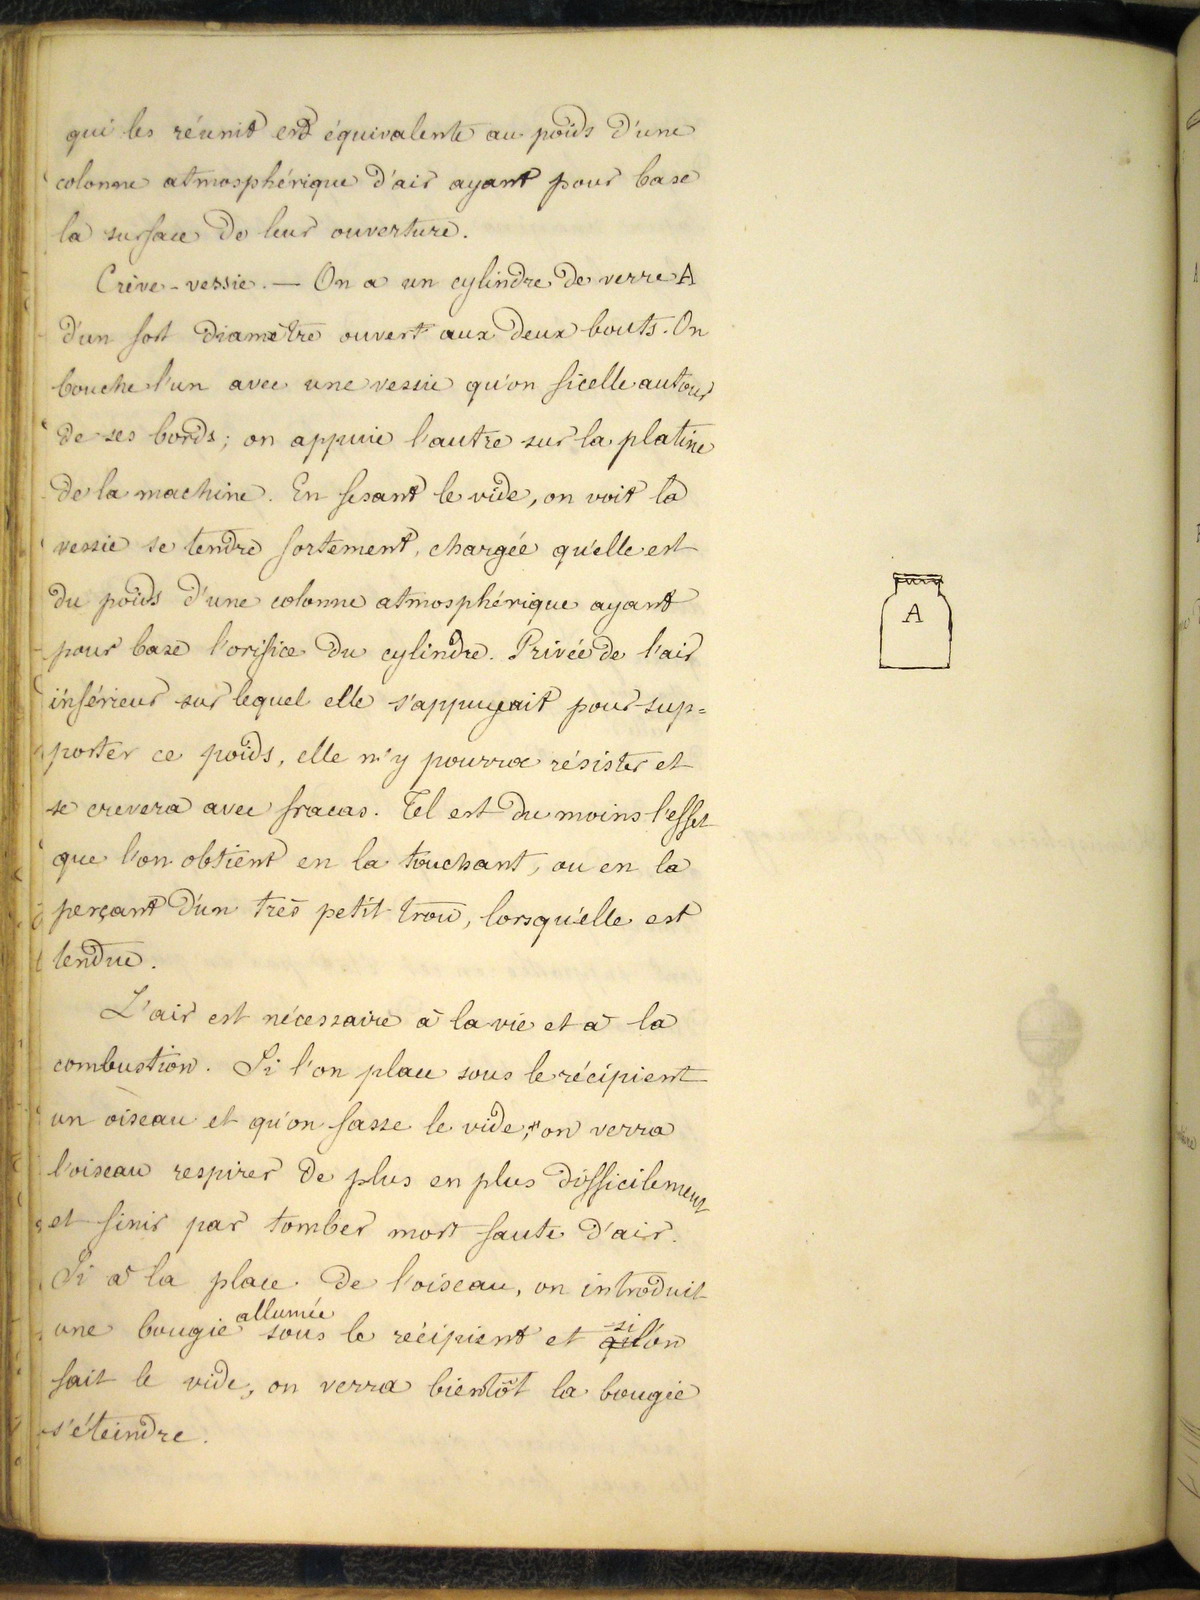 qui les réunit est équivalente au poids d'une
colonne atmosphérique d'air ayant pour base
la surface de leur ouverture.
Crève-vessie. — On a un cylindre de verre A
d'un fort diamètre ouvert aux deux bouts. On
bouche l'un avec une vessie qu'on ficelle autour
de ses bords; on appuie l'autre sur la platine
de la machine. En fesant le vide, on voit la
vessie se tendre fortement, chargée qu'elle est
du poids d'une colonne atmosphérique ayant
pour base l'orifice du cylindre. Privée de l'air
inférieur sur lequel elle s'appuyait pour sup=
porter ce poids, elle n'y pourra résister et
se crevera avec fracas. Tel est du moins l'effet
que l'on obtient en la touchant, ou en la
perçant d'un très petit trou, lorsqu'elle est
tendue.
L'air est nécessaire à la vie et à la
combustion. Si l'on place sous le récipient
un oiseau et qu'on fasse le vide, on verra
l'oiseau respirer de plus en plus difficilement
et finir par tomber mort faute d'air.
Si à la place de l'oiseau, on introduit
une bougie allumée sous le récipient et si l'on
fait le vide, on verra bientôt la bougie
s'éteindre.
A